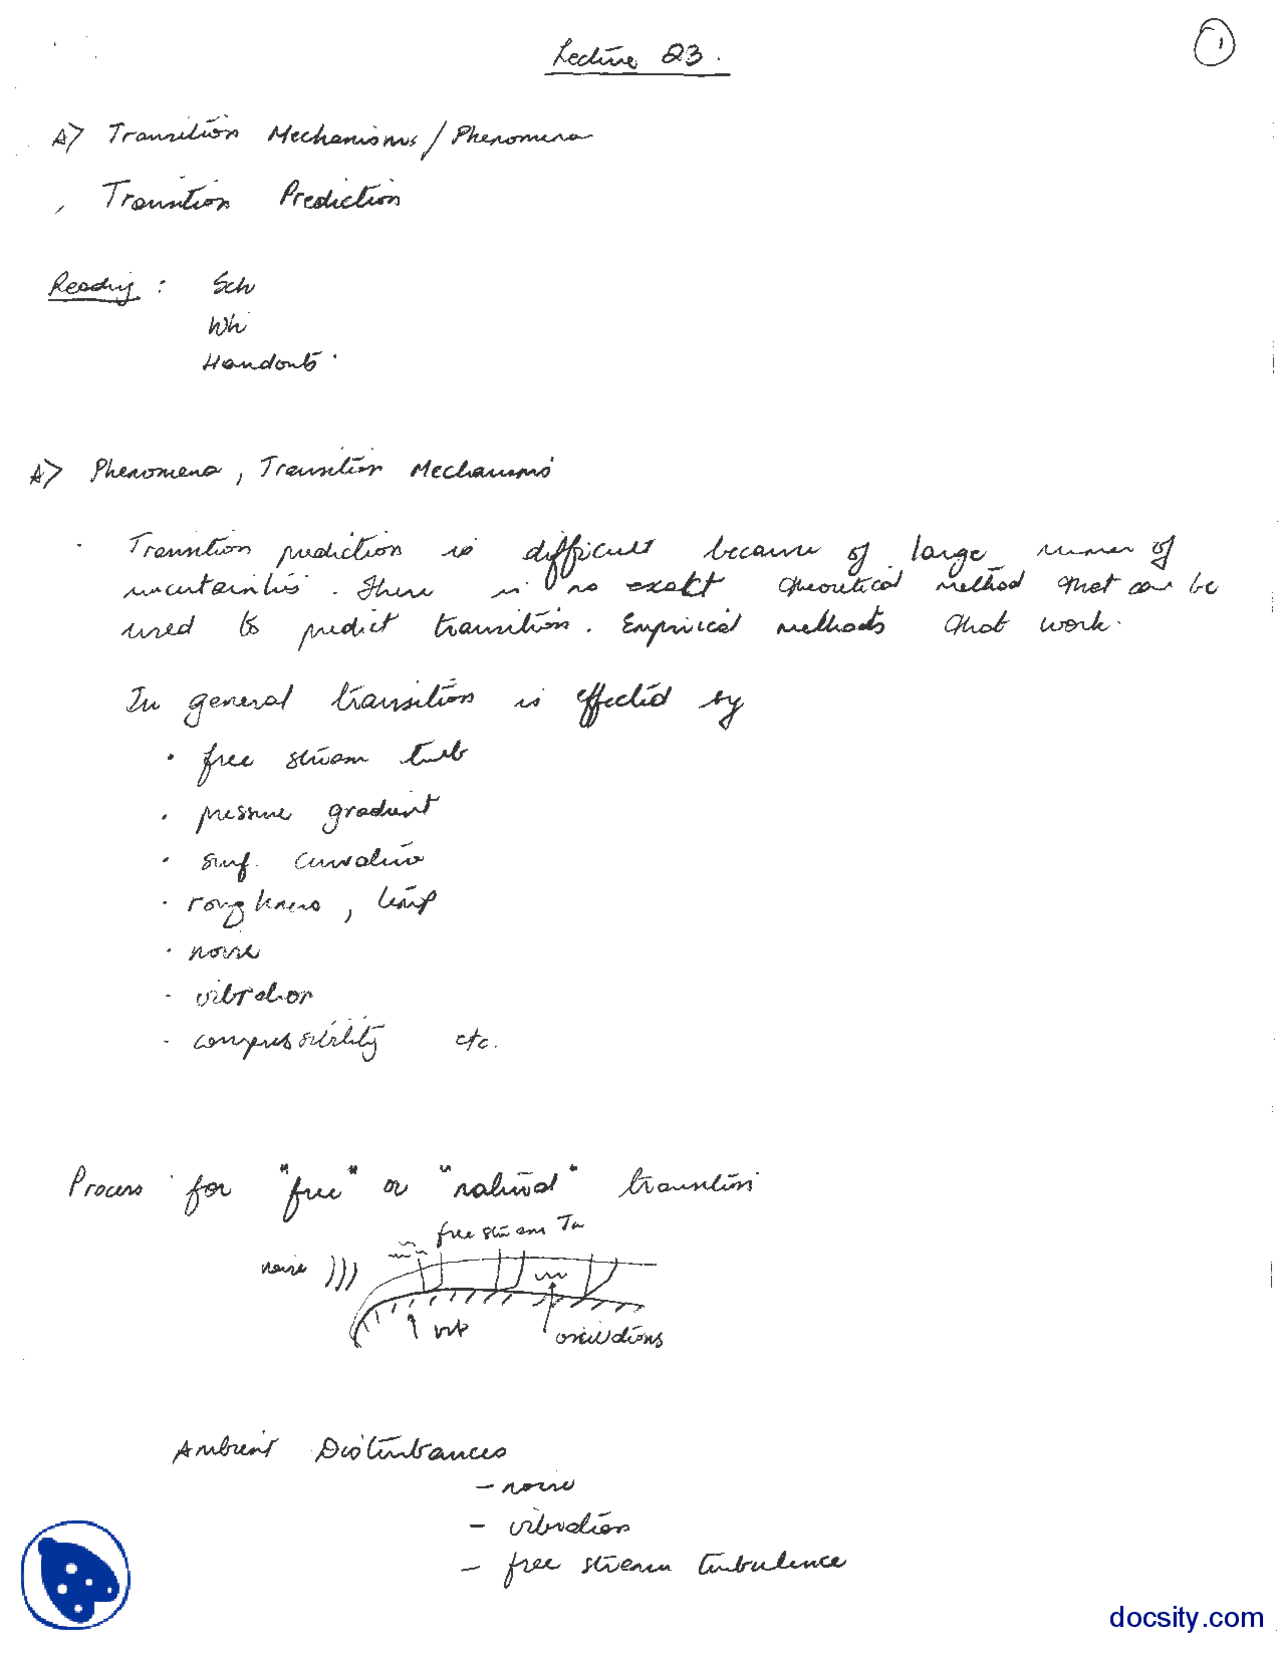 Lecture 23.
1
A) Transition Mechanisms / Phenomena
, Transition Prediction
Reading : Sch
Wh
Handouts.
A) Phenomena, Transition Mechanisms
· Transition prediction is difficult because of large numer of
uncertainties. There is no exact theoretical method that can be
used to predict transition. Empirical methods that work.
In general transition is effected by
· free stream turb
· pressure gradient
· surf. curvature
· roughness, temp
· noise
· vibration
· compressibility etc.
Process for "free" or "natural" transition
free stream Tu
noise )))
vib
oscillations
Ambient Disturbances
- noise
- vibration
- free stream turbulence
docsity.com